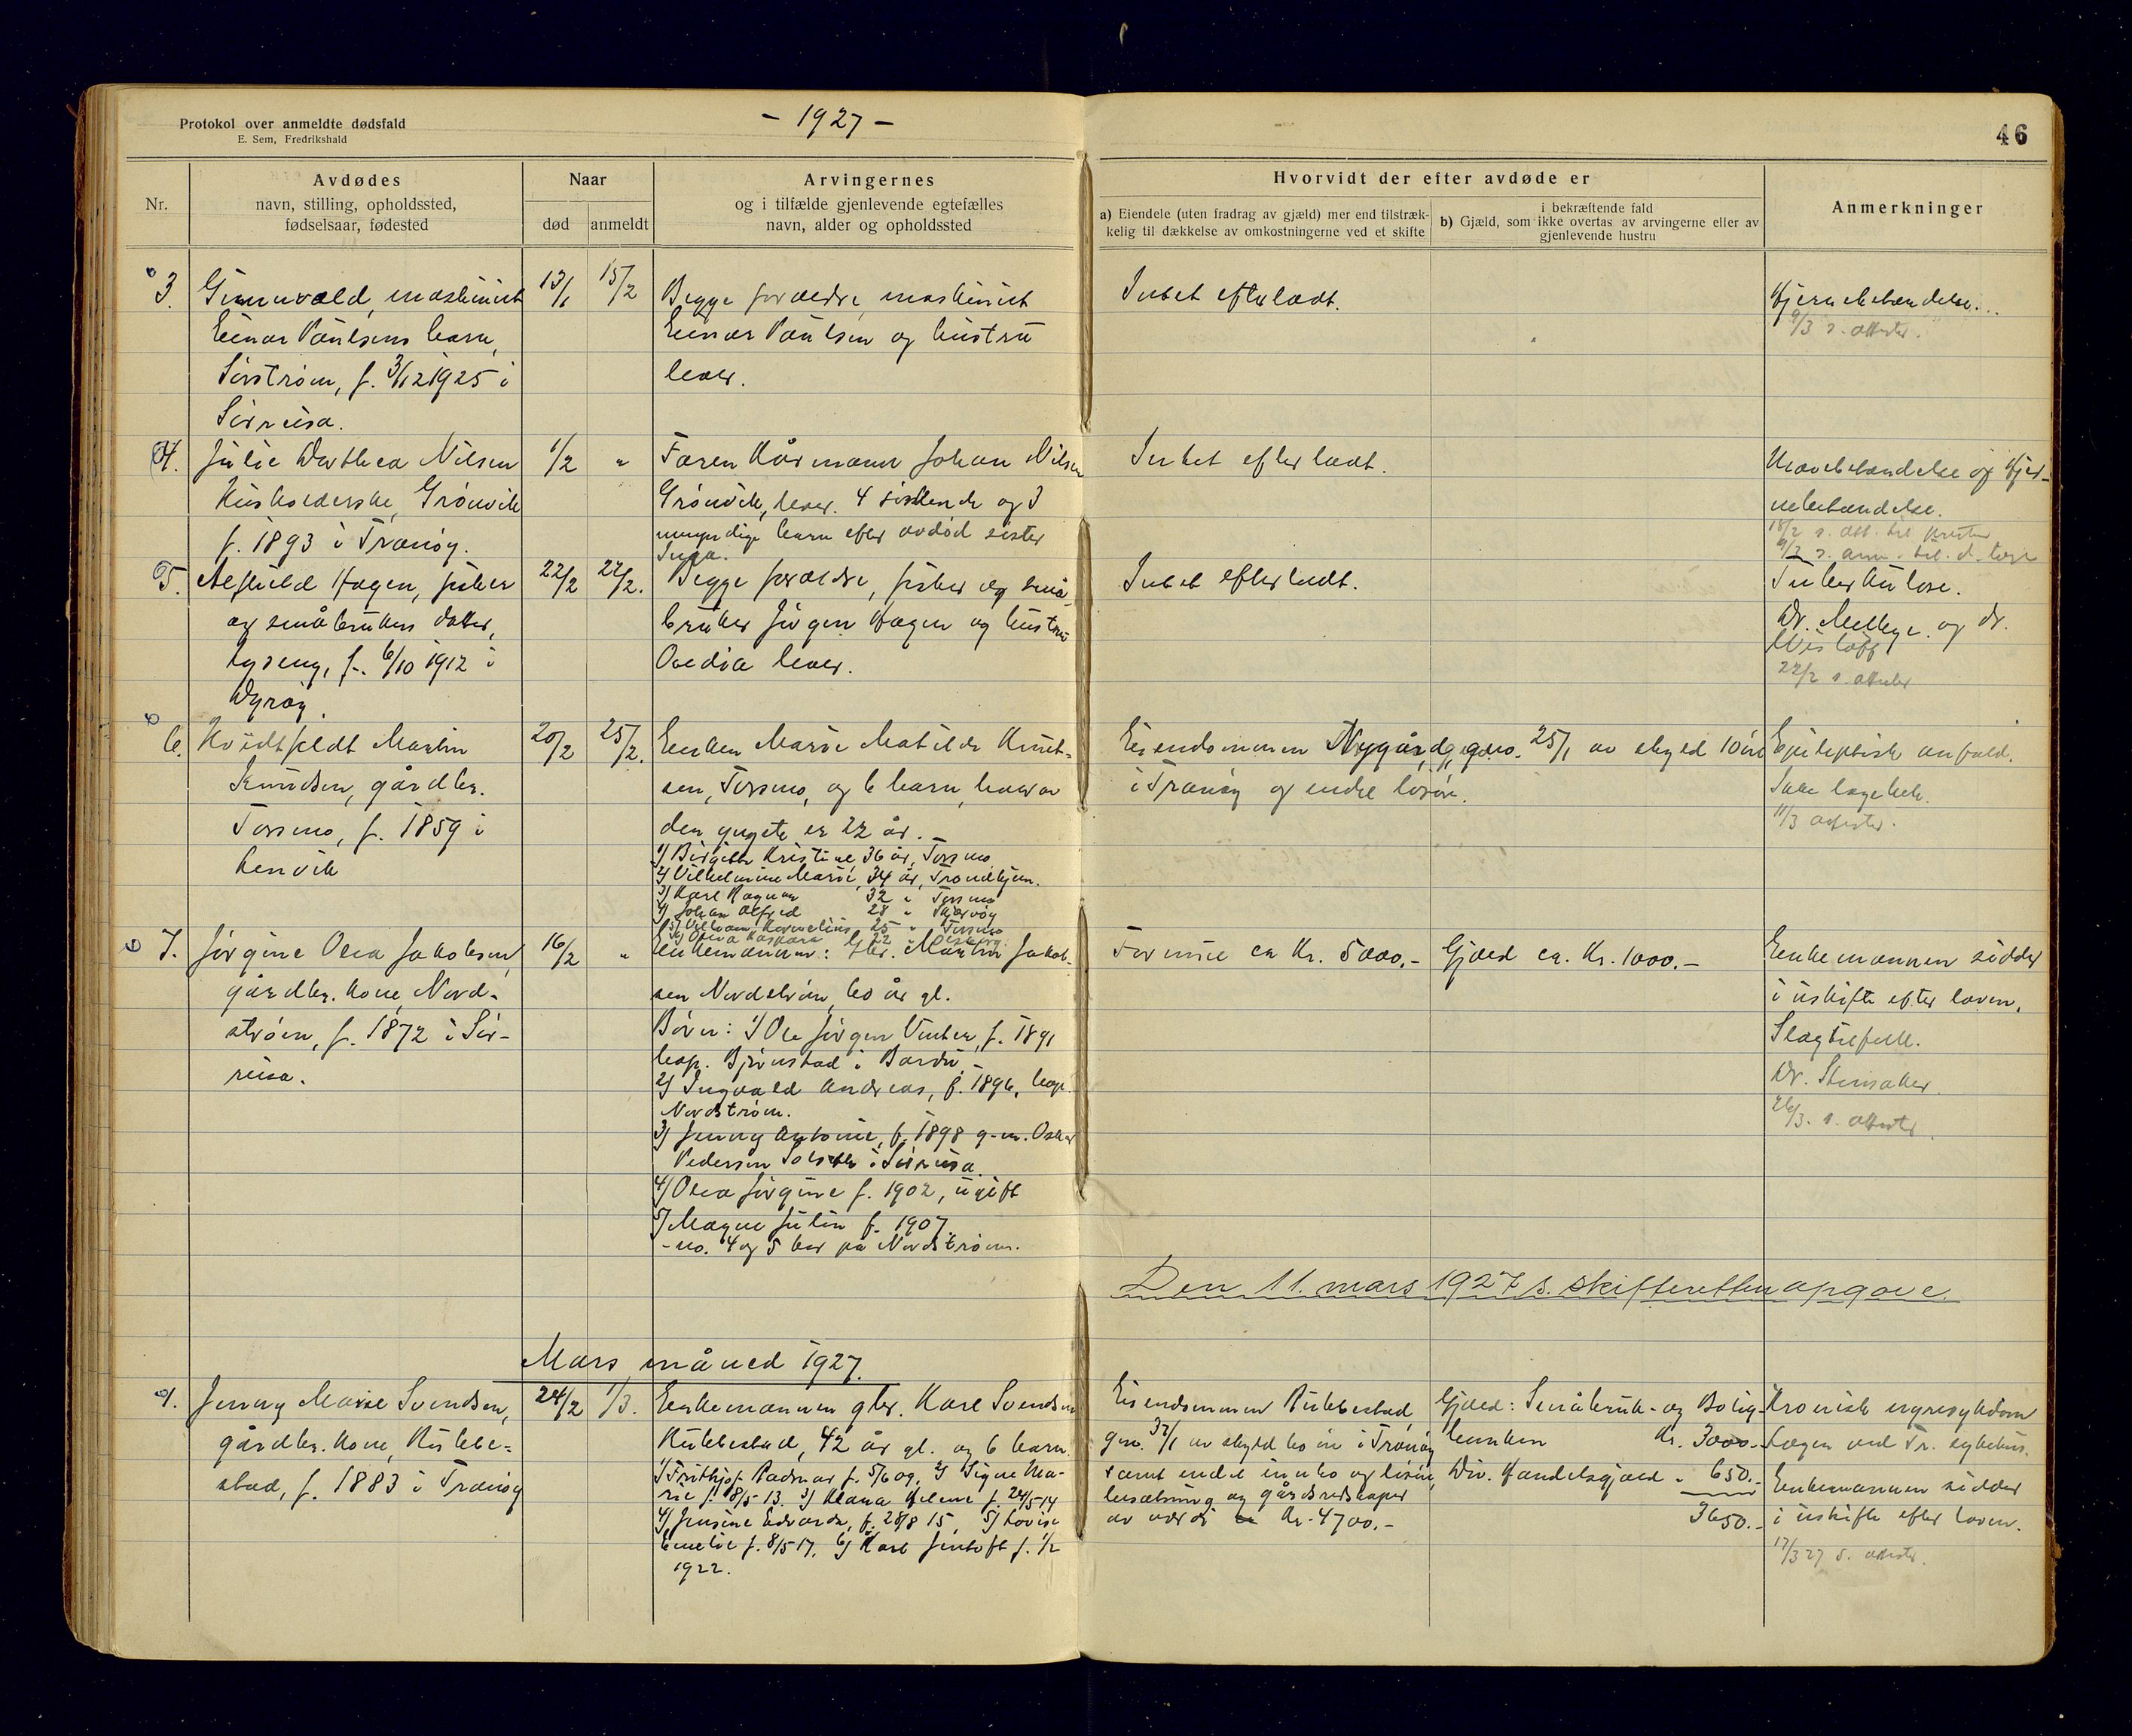 Protokol over anmeldte dødsfald
E. Sem, Fredrikshald
- 1927 -
46
Nr.
Avdødes
navn, stilling, opholdssted,
fødselsaar, fødested
Naar
død
anmeldt
Arvingernes
og i tilfælde gjenlevende egtefælles
navn, alder og opholdssted
Hvorvidt der efter avdøde er
a) Eiendele (uten fradrag av gjæld) mer end tilstræk-
kelig til dækkelse av omkostningerne ved et skifte
i bekræftende fald
b) Gjæld, som ikke overtas av arvingerne eller av
gjenlevende hustru
Anmerkninger
3.
maskinist
Einar Paulsens barn,
Sørstrøm, f. 3/12 1925 i
Sørreisa.
13/1
15/2
Begge forældre, maskinist
Einar Paulsen og hustru
lever.
Intet efterladt.
Hjernebetændelse.
9/3 s. attester.
4.
Julie Dorthea Nilsen
Husholderske, Grönvik
f. 1893 i Tranöy.
1/2
"
Faren Kårmann Johan Nilsen
Grönvik, lever. 4 söskende og 3
umyndige barn efter avdöd söster
Inga.
Intet efterladt.
Mavebetændelse og Hjer-
nebetændelse.
5.
Alfhild Hagen, fisker
og småbrukers datter,
f. 6/10 1912 i
Dyröy.
22/2
22/2.
Begge forældre, fisker og små-
bruker Jörgen Hagen og hustru
Ovedia lever.
Intet efterladt.
Tuberkulose.
Dr. Melbye og dr.
22/2 s. attester
6.
Hvidtfeldt Martin
Knudsen, gårdbr.
Torsmo, f. 1859 i
Lenvik
20/2
25/2.
Enken Marie Matilde Knut-
sen, Torsmo, og 6 barn, hvorav
den yngste er 22 år.
1) Birgitte Kristine 36 år, Torsmo
2) Vilhelmine Marie, 34 år, Trondhjem.
3) Karl Ragnar 32 " Torsmo
4) Johan Alfred 28 " Skjervöy
5) William Kornelius 25 " Torsmo
6) Olava Kaspara 22 "
Eiendommen Nygård, gno. 25/1 av skyld 10 öre
i Tranöy og endel lösöre.
Epileptisk anfald.
11/3 attester.
7.
Jörgine Olea Jakobsen,
gårdbr. kone, Nord-
ström, f. 1872 i Sör-
reisa.
16/2
"
Enkemannen: Gbr. Martin Jakob-
sen Nordström, 60 år gl.
Börn: 1) Ole Jörgen Vinter, f. 1891
bop. Björnstad i Bardu.
2) Ingvald Andreas, f. 1896, bop.
Nordström.
3) Jenny Antonie, f. 1898 g. m. Oskar
Pedersen i Sörreisa.
4) Olea Jörgine f. 1902, ugift
5) Magne Julin f. 1907.
- no. 4 og 5 bor på Nordström.
Formue ca Kr. 5000.-
Gjæld ca. Kr. 1000.-
Enkemannen sidder
i uskifte efter loven.
Slagtilfelle.
Dr. Stensaker
26/3. s. attester.
Den 11. mars 1927 s. skifteretten opgave.
Mars måned 1927.
1.
Jenny Marie Svendsen,
gårdbr. kone, Rubbe-
stad, f. 1883 i Tranöy
24/2
1/3.
Enkemannen gbr. Karl Svendsen
Rubbestad, 42 år gl. og 6 barn.
1) Frithjof Radmar f. 5/6 09, 2) Signe Ma-
rie f. 18/5 13. 3) Klara Helene f. 24/5 14
4) Jensine Edvarda, f. 28/8 15, 5) Lovise
Emelie f. 8/5 17, 6) Karl Jentoft f. 1/2
1922.
Eiendommen Rubbestad,
gno. 32/1 av skyld 60 öre i Tranöy
samt endel innbo og lösöre,
besætning og gårdsredskaper
av værdi Kr. 4700.-
Gjæld: Småbruk- og Bolig-
banken Kr. 3000.-
Div. Handelsgjæld " 650.-
3650.-
Kronisk nyresykdom
Lægen ved Tr. sykehus.
Enkemannen sidder
i uskifte efter loven.
17/3 27 s. attester.